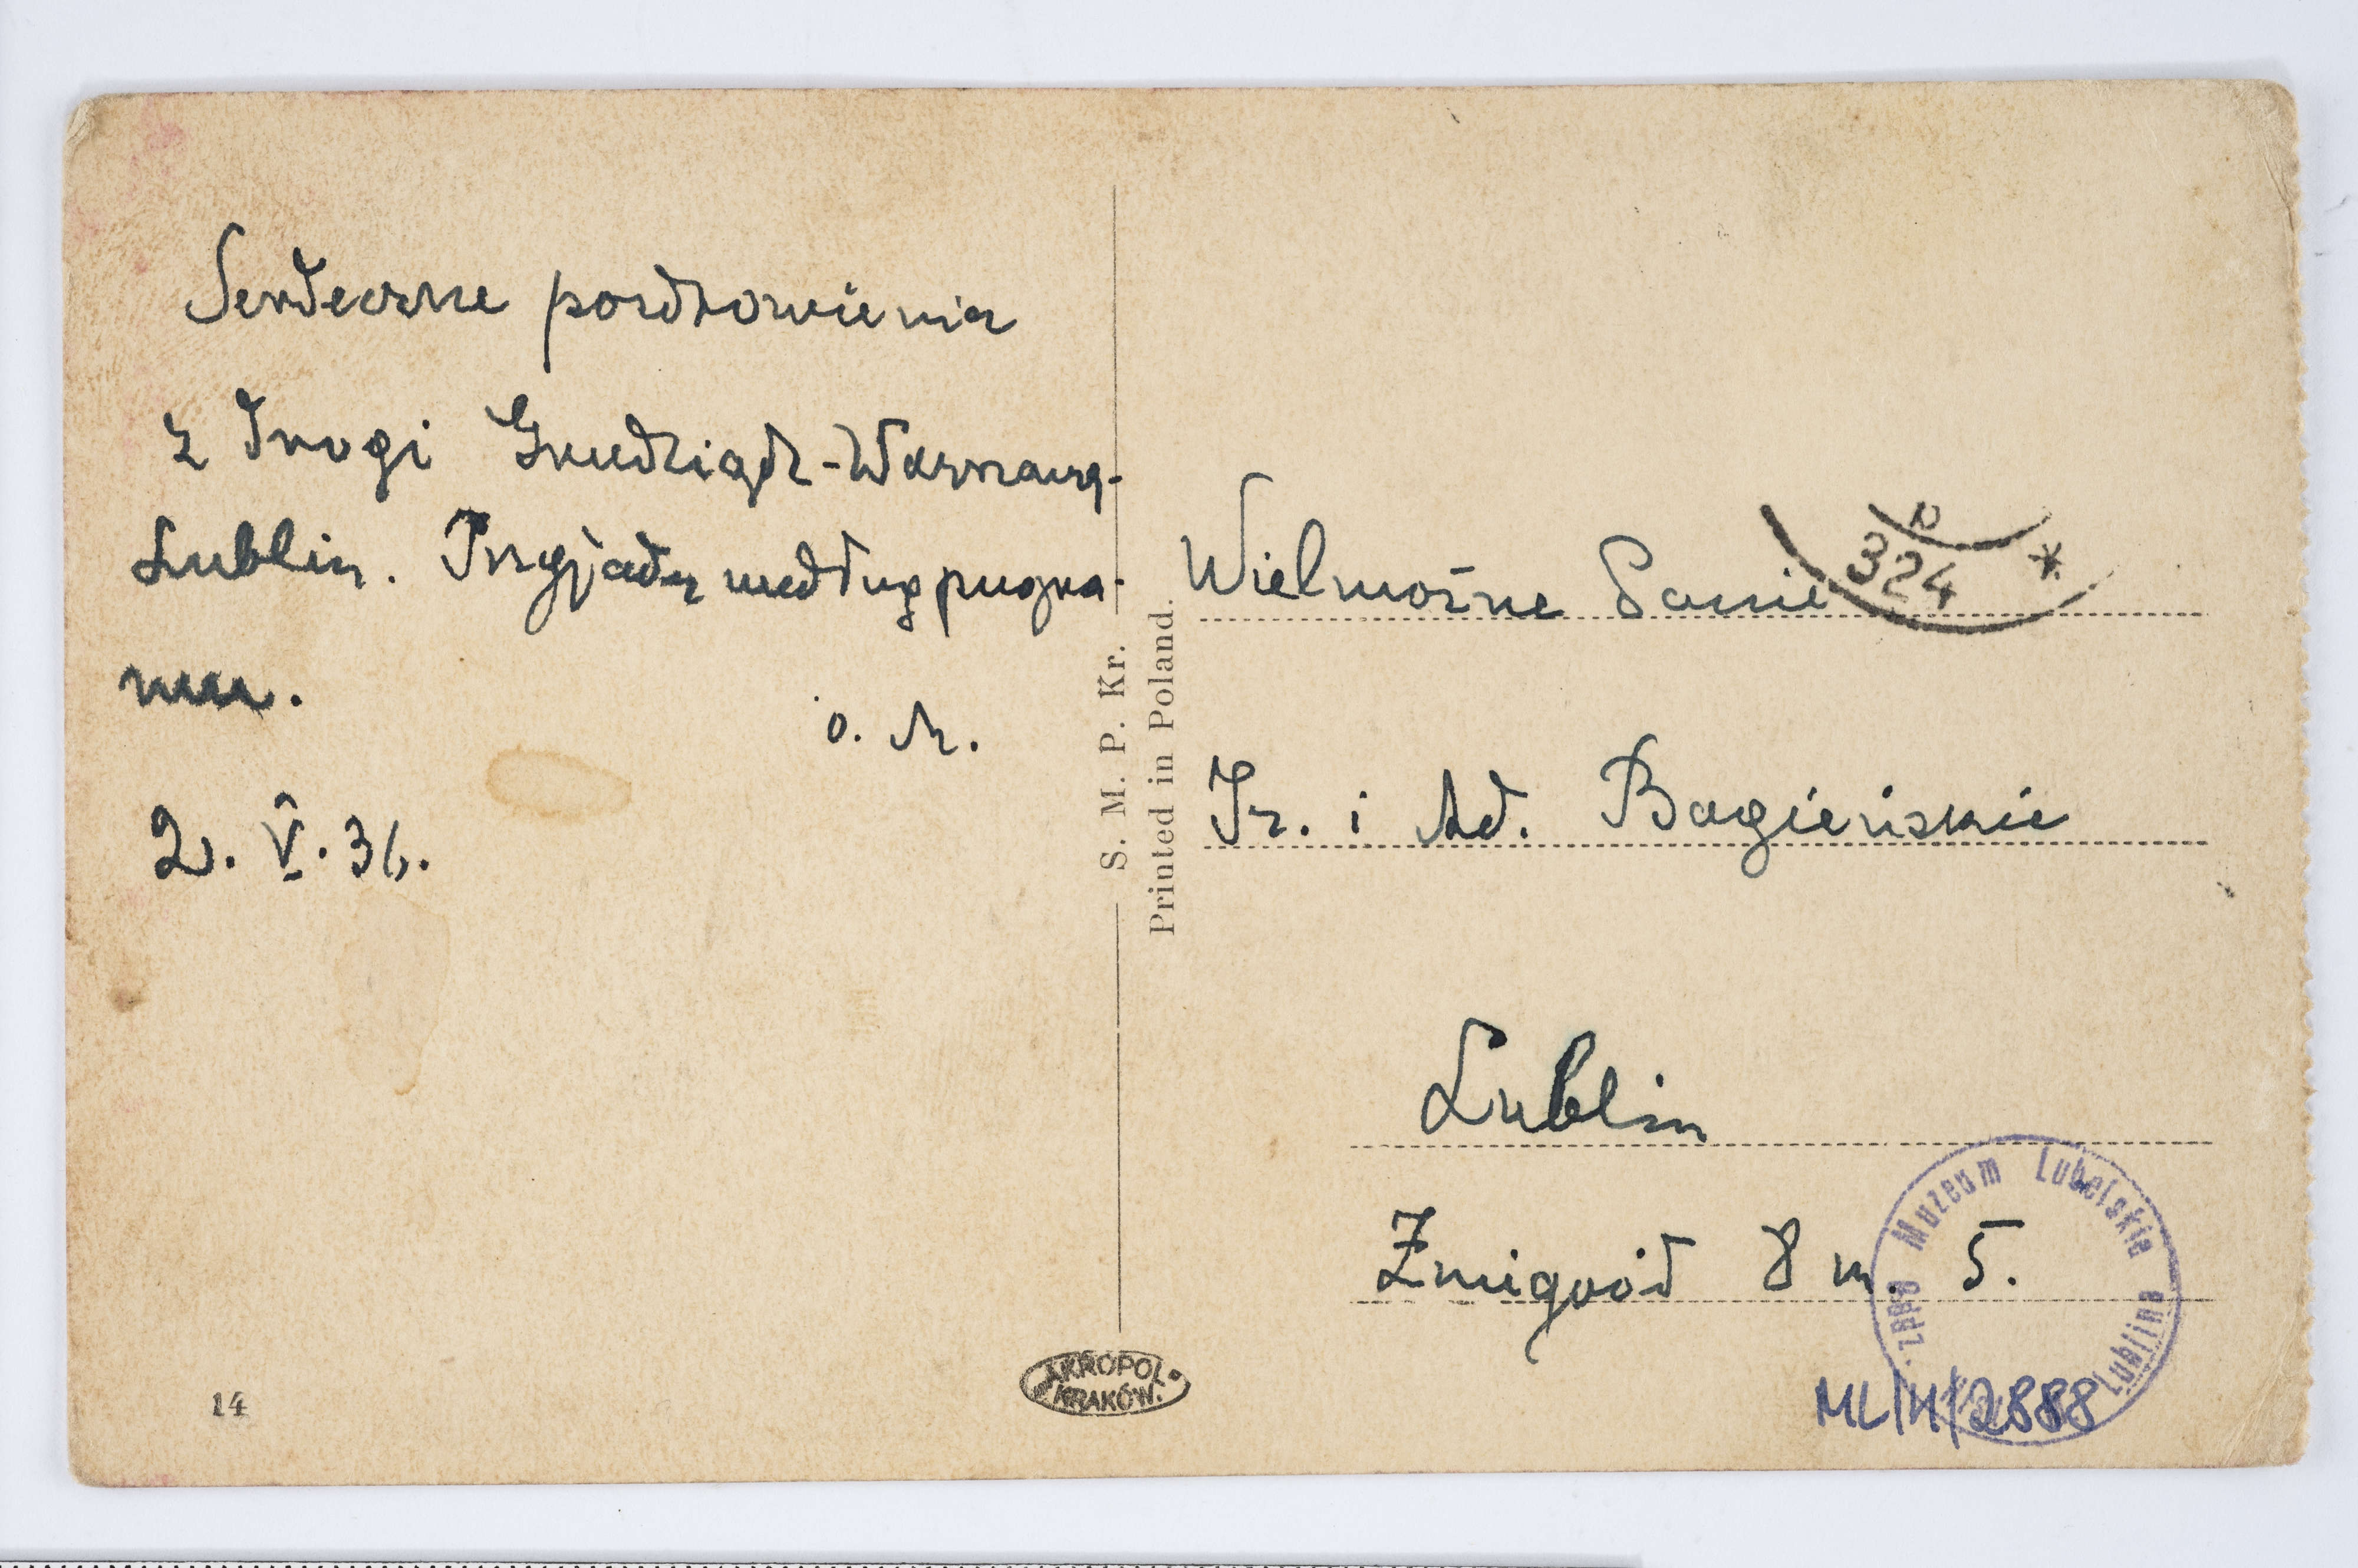 Serdeczne pozdrowienia
z drogi Grudziądz-Warszawa-
Lublin. Przyjadę według progra-
mu.
J. M.
2. V. 36.
S. M. P. Kr.
Printed in Poland.
324
Wielmożne Panie
Ir. i Ad. Bagieńskie
Lublin
Żmigród 8 m. 5.
Muzeum Lubelskie
Lublina
ML/H/2888
14
AKROPOL
KRAKÓW.